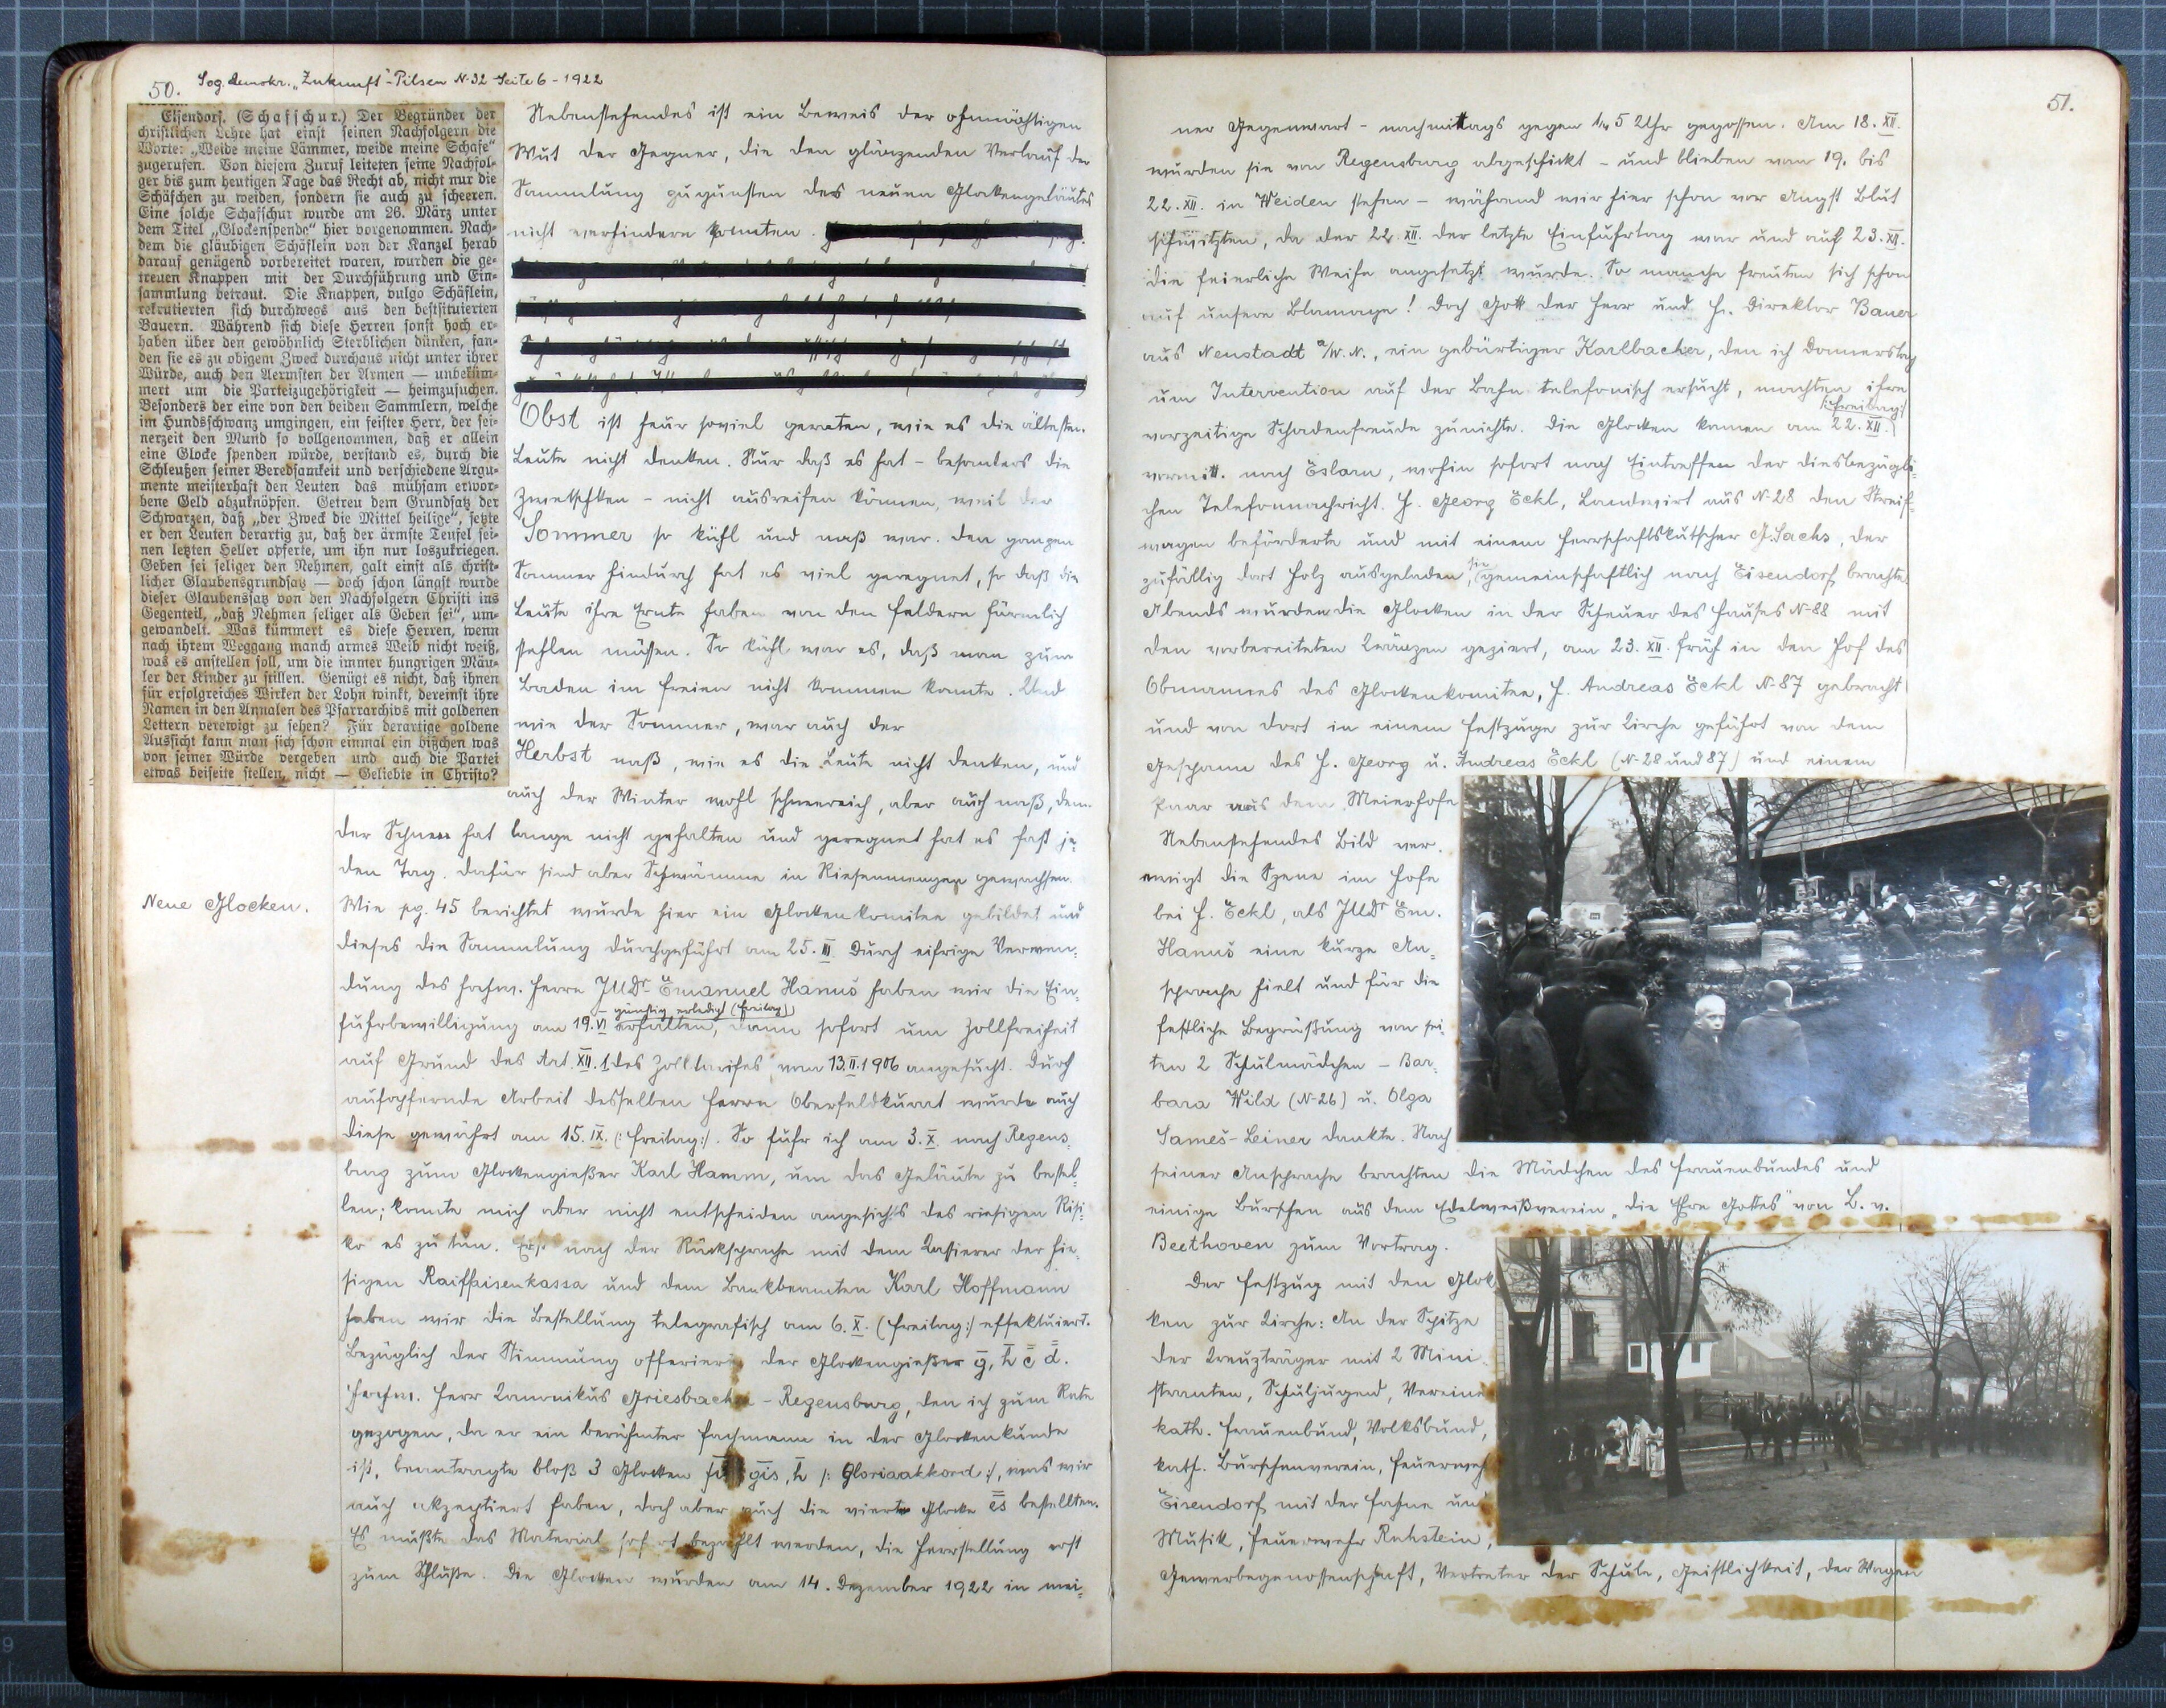 50.
Sog. demokr. „Zukunft"-Pilsen N-32 Seite 6 - 1922
Eisendorf. (Schafschur.) Der Begründer der
christlichen Lehre hat einst seinen Nachfolgern die
Worte: „Weide meine Lämmer, weide meine Schafe"
zugerufen. Von diesem Zuruf leiteten seine Nachfol-
ger bis zum heutigen Tage das Recht ab, nicht nur die
Schäfchen zu weiden, sondern sie auch zu scheeren.
Eine solche Schafschur wurde am 26. März unter
dem Titel „Glockenspende" hier vorgenommen. Nach-
dem die gläubigen Schäflein von der Kanzel herab
darauf genügend vorbereitet waren, wurden die ge-
treuen Knappen mit der Durchführung und Ein-
sammlung betraut. Die Knappen, vulgo Schäflein,
rekrutierten sich durchwegs aus den bestsituierten
Bauern. Während sich diese Herren sonst hoch er-
haben über den gewöhnlich Sterblichen dünken, fan-
den sie es zu obigem Zweck durchaus nicht unter ihrer
Würde, auch den Aermsten der Armen — unbeküm-
mert um die Parteizugehörigkeit — heimzusuchen.
Besonders der eine von den beiden Sammlern, welche
im Hundsschwanz umgingen, ein feister Herr, der sei-
nerzeit den Mund so vollgenommen, daß er allein
eine Glocke spenden würde, verstand es, durch die
Schleußen seiner Beredsamkeit und verschiedene Argu-
mente meisterhaft den Leuten das mühsam erwor-
bene Geld abzuknöpfen. Getreu dem Grundsatz der
Schwarzen, daß „der Zweck die Mittel heilige", setzte
er den Leuten derartig zu, daß der ärmste Teufel sei-
nen letzten Heller opferte, um ihn nur loszukriegen.
Geben sei seliger den Nehmen, galt einst als christ-
licher Glaubensgrundsatz — doch schon längst wurde
dieser Glaubenssatz von den Nachfolgern Christi ins
Gegenteil, „daß Nehmen seliger als Geben sei", um-
gewandelt. Was kümmert es diese Herren, wenn
nach ihrem Weggang manch armes Weib nicht weiß,
was es anstellen soll, um die immer hungrigen Mäu-
ler der Kinder zu stillen. Genügt es nicht, daß ihnen
für erfolgreiches Wirken der Lohn winkt, dereinst ihre
Namen in den Annalen des Pfarrarchivs mit goldenen
Lettern verewigt zu sehen? Für derartige goldene
Aussicht kann man sich schon einmal ein bißchen was
von seiner Würde vergeben und auch die Partei
etwas beiseite stellen, nicht — Geliebte in Christo?
Nebenstehendes ist ein Beweis der ohnmächtigen
Wut der Gegner, die den glänzenden Verlauf der
Sammlung zugunsten des neuen Glockengeläutes
nicht verhindern konnten.
Obst ist heuer soviel geraten, wie es die ältesten
Leute nicht denken. Nur daß es hat - besonders die
Zwetschken - nicht ausreifen können, weil der
Sommer so kühl und naß war. Den ganzen
Sommer hindurch hat es viel geregnet, so daß die
Leute ihre Ernte haben von den Feldern förmlich
stehlen müssen. So kühl war es, daß man zum
Baden im Freien nicht kommen konnte. Und
wie der Sommer, war auch der
Herbst naß, wie es die Leute nicht denken, und
auch der Winter wohl schneereich, aber auch naß, denn
der Schnee hat lange nicht gehalten und geregnet hat es fast je-
den Tag. Dafür sind aber Schwämme in Riesenmengen gewachsen.
Neue Glocken.
Wie pg. 45 berichtet wurde hier ein Glockenkomitee gebildet und
dieses die Sammlung durchgeführt am 25. III. Durch eifrige Verwen-
dung des hochw. Herrn JUDr Emanuel Hanuš haben wir die Ein-
- günstig erledigt (Freitag)
fuhrbewilligung am 19. VI erhalten, dann sofort um Zollfreiheit
auf Grund des Art. XII. 1 des Zolltarifes vom 13.II.1906 angesucht. Durch
aufopfernde Arbeit desselben Herrn Oberfeldkurat wurde auch
diese gewährt am 15. IX. (: Freitag:). So fuhr ich am 3. X. nach Regens-
burg zum Glockengießer Karl Hamm, um das Geläute zu bestel-
len; konnte mich aber nicht entscheiden angesichts des riesigen Risi-
ko es zu tun. Erst nach der Rücksprache mit dem Kassierer der hie-
sigen Raiffeisenkassa und dem Bankbeamten Karl Hoffmann
haben wir die Bestellung telegrafisch am 6. X. (Freitag:) effektuiert.
Bezüglich der Stimmung offerierte der Glockengießer g, h c d.
Hochw. Herr Kanonikus Griesbacher - Regensburg, den ich zum Rate
gezogen, da er ein berühmter Fachmann in der Glockenkunde
ist, beantragte bloß 3 Glocken fis gis, h /: Gloriaakkord :/, was wir
auch akzeptiert haben, doch aber auch die vierte Glocke cis bestellten.
Es mußte das Material sofort bezahlt werden, die Herstellung erst
zum Schluße. Die Glocken wurden am 14. Dezember 1922 in mei-
51.
ner Gegenwart - nachmittags gegen 1/4 5 Uhr gegossen. Am 18. XII.
wurden sie von Regensburg abgeschickt - und blieben vom 19. bis
22. XII. in Weiden stehen - während wir hier schon vor Angst Blut
schwitzten, da der 22. XII. der letzte Einfuhrtag war und auf 23. XII.
die feierliche Weihe angesetzt wurde. So manche freuten sich schon
auf unsere Blamage! Doch Gott der Herr und H. Direktor Bauer
aus Neustadt a/W.N., ein gebürtiger Karlbacher, den ich Donnerstag
um Intervention auf der Bahn telefonisch ersucht, machten ihre
/: Freitag:/
vorzeitige Schadenfreude zunichte. Die Glocken kamen am 22. XII.
vormitt. nach Eslarn, wohin sofort nach Eintreffen der diesbezügli-
chen Telefonnachricht H. Georg Eckl, Landwirt aus N-28 den Streif-
wagen beförderte und mit einem Herrschaftskutscher G. Sachs, der
zufällig dort Holz ausgeladen, sie gemeinschaftlich nach Eisendorf brachte.
Abends wurden die Glocken in der Scheuer des Hauses N-88 mit
den vorbereiteten Kränzen geziert, am 23. XII. früh in den Hof des
Obmannes des Glockenkomitee, H. Andreas Eckl N-87 gebracht
und von dort in einem Festzuge zur Kirche geführt von dem
Gespann des H. Georg u. Andreas Eckl (N-28 und 87) und einem
Paar aus dem Meierhofe
Nebenstehendes Bild ver-
ewigt die Szene im Hofe
bei H. Eckl, als JUDr Em.
Hanuš eine kurze An-
sprache hielt und für die
festliche Begrüßung von sei-
ten 2 Schulmädchen - Bar-
bara Wild (N-26) u. Olga
Sameš-Leiner dankte. Nach
seiner Ansprache brachten die Mädchen des Frauenbundes und
einige Burschen aus dem Edelweißverein „die Ehre Gottes" von L. v.
Beethoven zum Vortrag.
Der Festzug mit den Glok-
ken zur Kirche: An der Spitze
der Kreuzträger mit 2 Mini-
stranten, Schuljugend, Vereine
kath. Frauenbund, Volksbund,
kath. Burschenverein, Feuerwehr
Eisendorf mit der Fahne und
Musik, Feuerwehr Ruhstein,
Gewerbegenossenschaft, Vertreter der Schule, Geistlichkeit, der Wagen